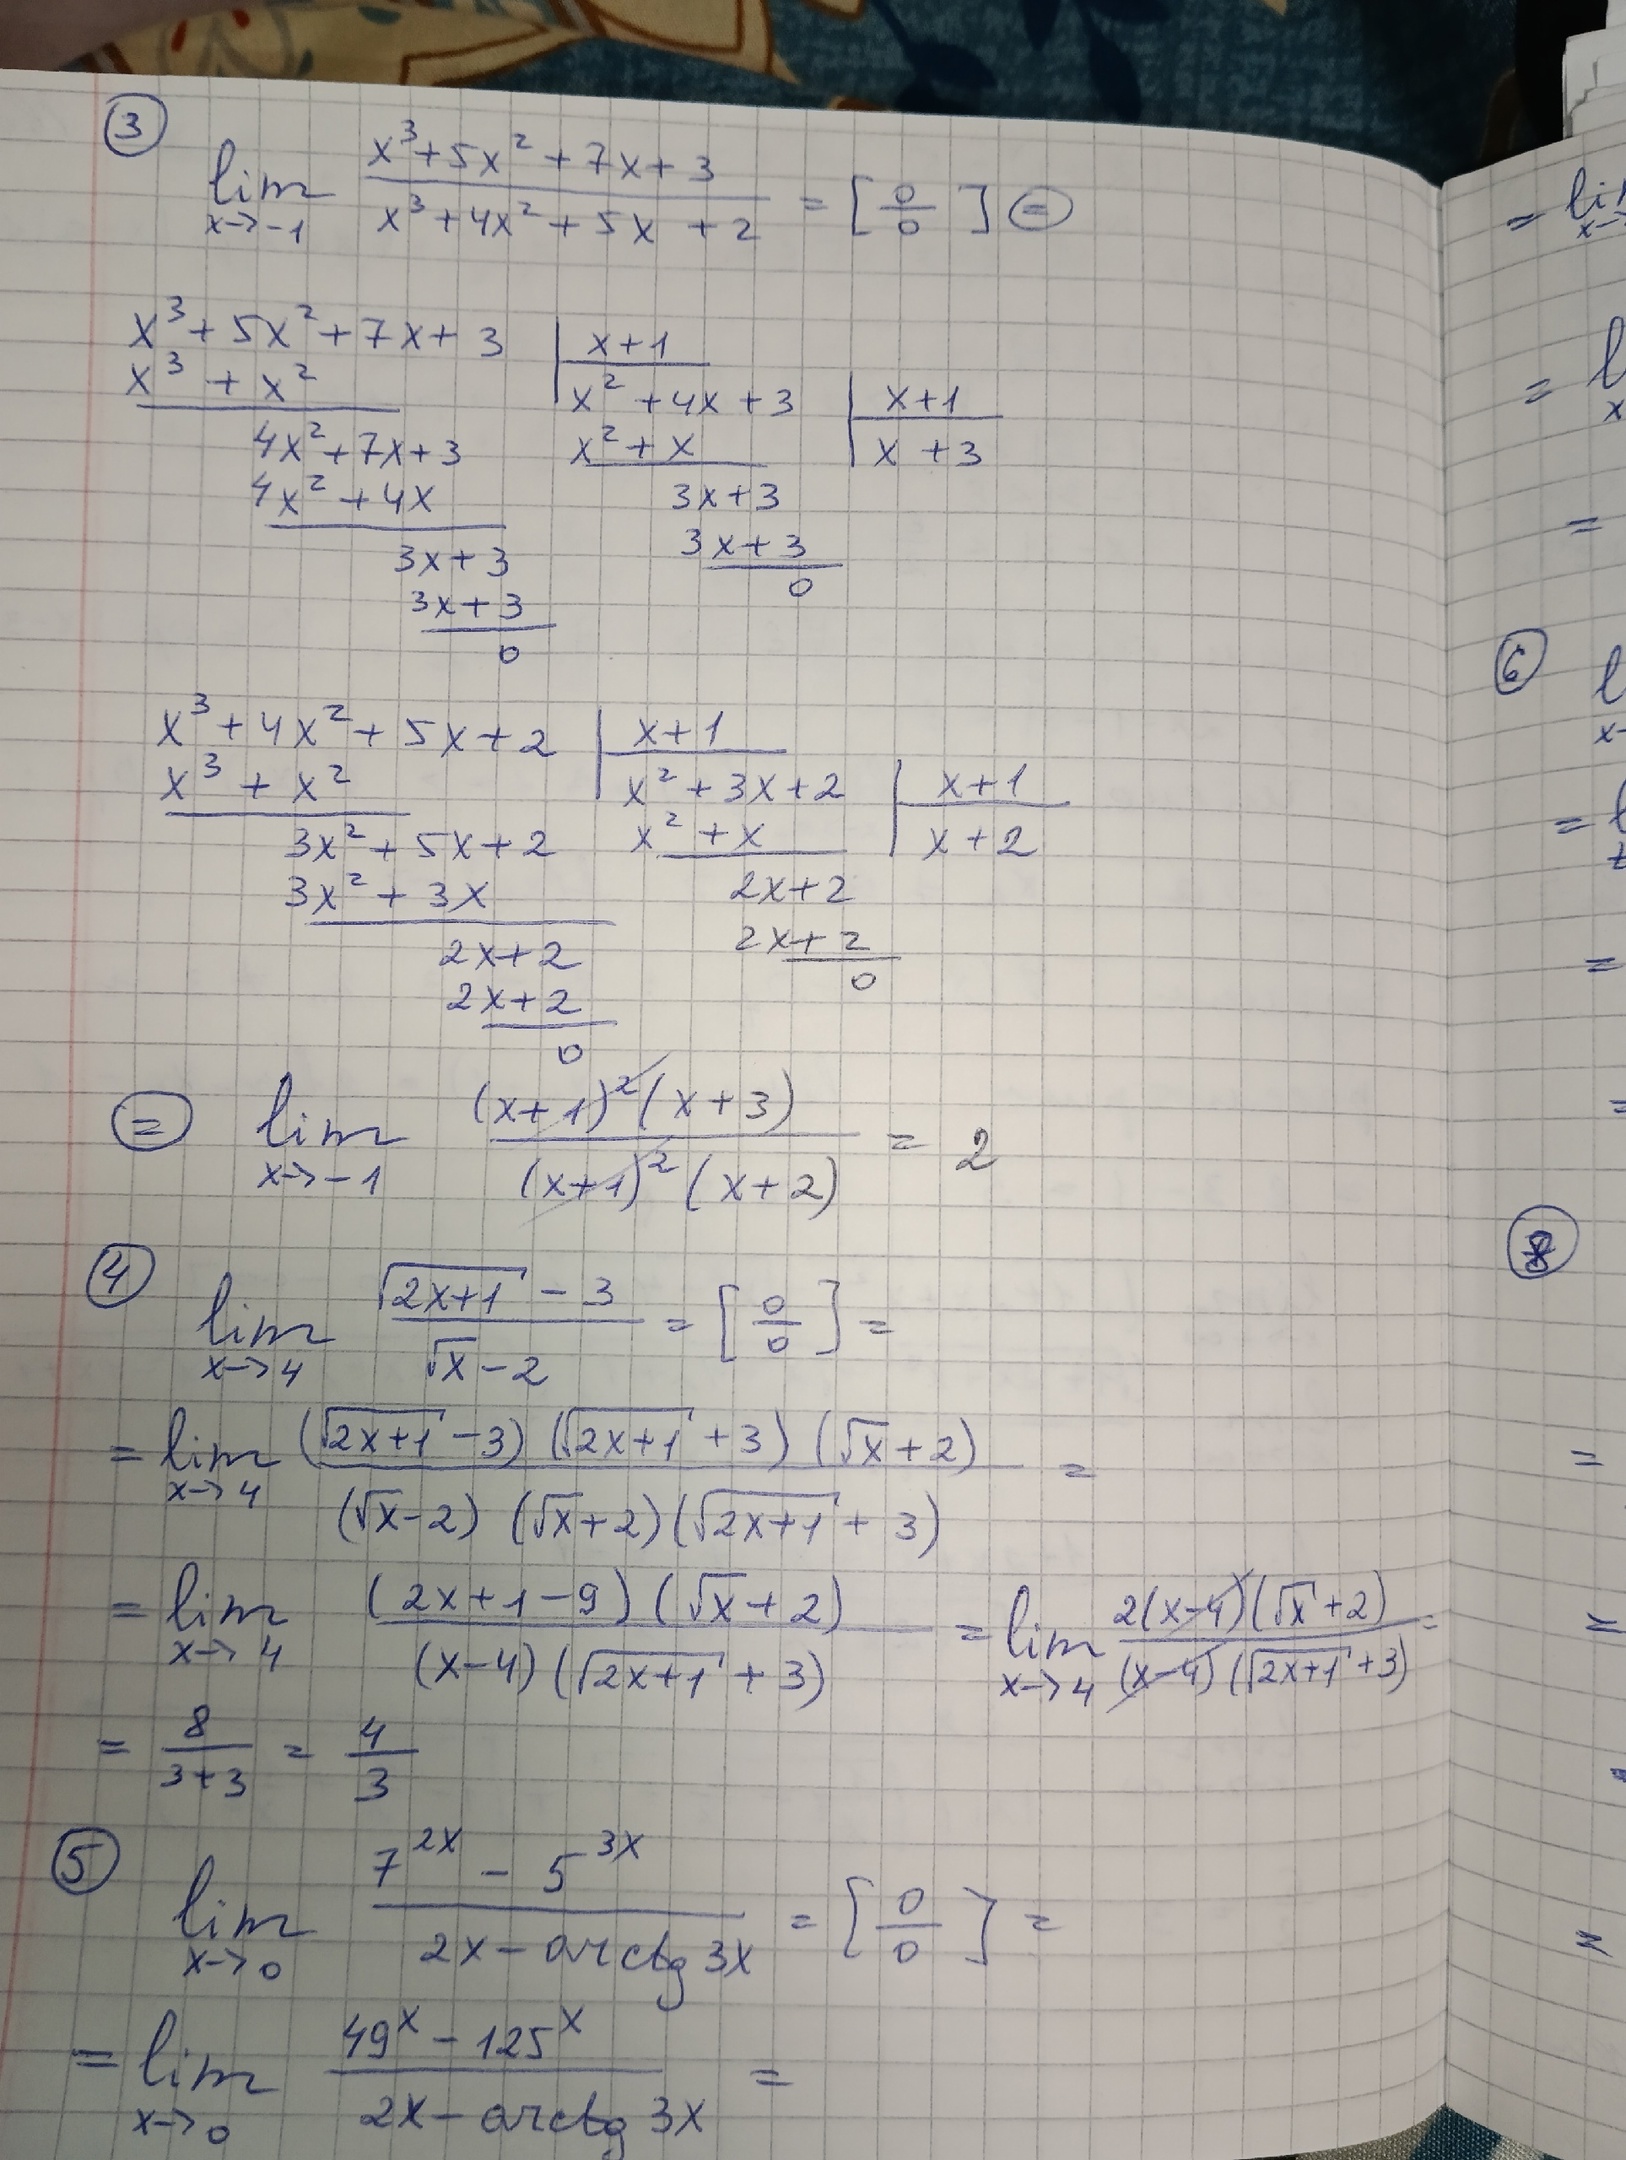 ③
lim x→-1 (x³+5x²+7x+3)/(x³+4x²+5x+2) = [0/0] ⊜
x³+5x²+7x+3 | x+1
x³+x² | x²+4x+3 | x+1
4x²+7x+3 x²+x | x+3
4x²+4x 3x+3
3x+3 3x+3
3x+3 0
0
x³+4x²+5x+2 | x+1
x³+x² | x²+3x+2 | x+1
3x²+5x+2 x²+x | x+2
3x²+3x 2x+2
2x+2 2x+2
2x+2 0
0
⊜ lim x→-1 ((x+1)²(x+3))/((x+1)²(x+2)) = 2
④
lim x→4 (√(2x+1) - 3)/(√x - 2) = [0/0] =
= lim x→4 ((√(2x+1) - 3)(√(2x+1) + 3)(√x + 2))/((√x - 2)(√x + 2)(√(2x+1) + 3)) =
= lim x→4 ((2x+1-9)(√x + 2))/((x-4)(√(2x+1) + 3)) = lim x→4 (2(x-4)(√x + 2))/((x-4)(√(2x+1) + 3)) =
= 8/(3+3) = 4/3
⑤
lim x→0 (7^(2x) - 5^(3x))/(2x - arctg 3x) = [0/0] =
= lim x→0 (49^x - 125^x)/(2x - arctg 3x) =
⑥
⑧